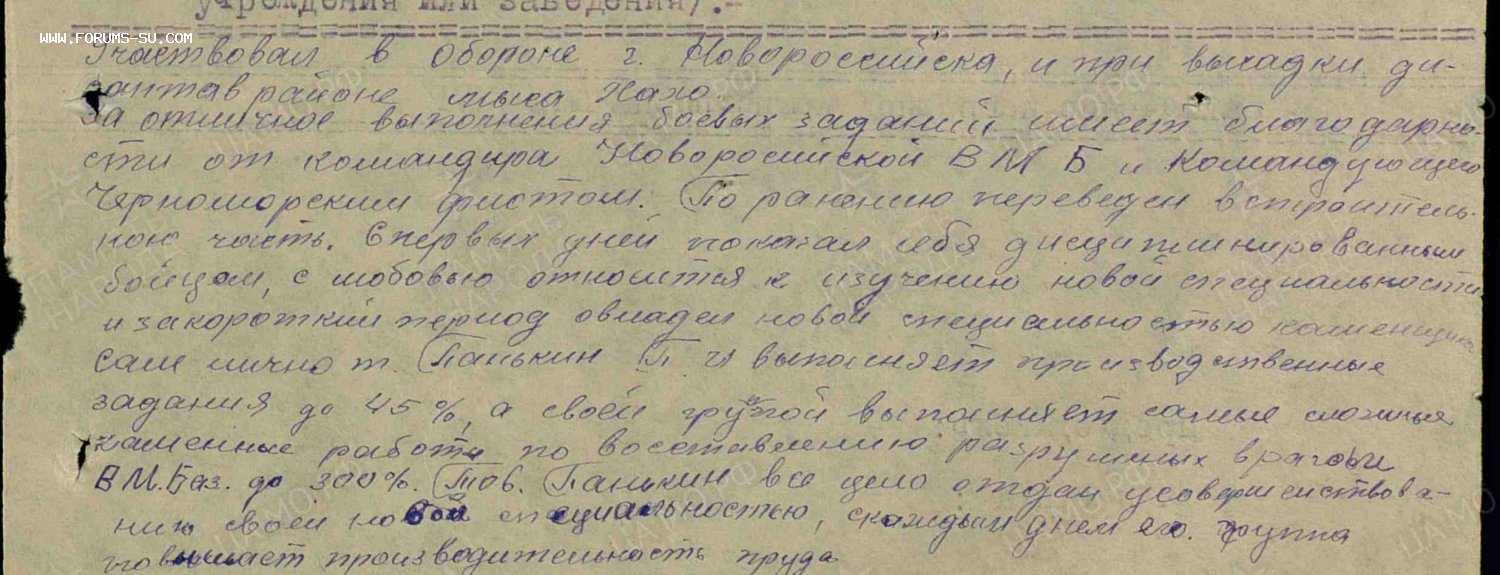 учреждения или заведения).-
www.forums-su.com
Участвовал в обороне г. Новороссийска, и при высадки ди-
сантав районе мыса Хако
За отличное выполнения боевых заданий имеет благодарно-
сти от командира Новоросийской ВМБ и Командующего
Черноморским флотом. По ранению переведен в строитель-
ною часть. Спервых дней показал себя дисциплинированным
бойцом, с любовью относится к изучению новой специальности
и закороткий период овладел новой специальностью каменщика
сам лично т. Панькин П. И выполняет производственные
задания до 45%, а своей групой выполняет самые сложные
каменные работы по восставлению разрушиных врагом
ВМ.Баз. до 300%. Тов. Панькин все цело отдан усовершенствова-
нию своей новой специальностью, скаждым днем его. группа
повышает производительность труда